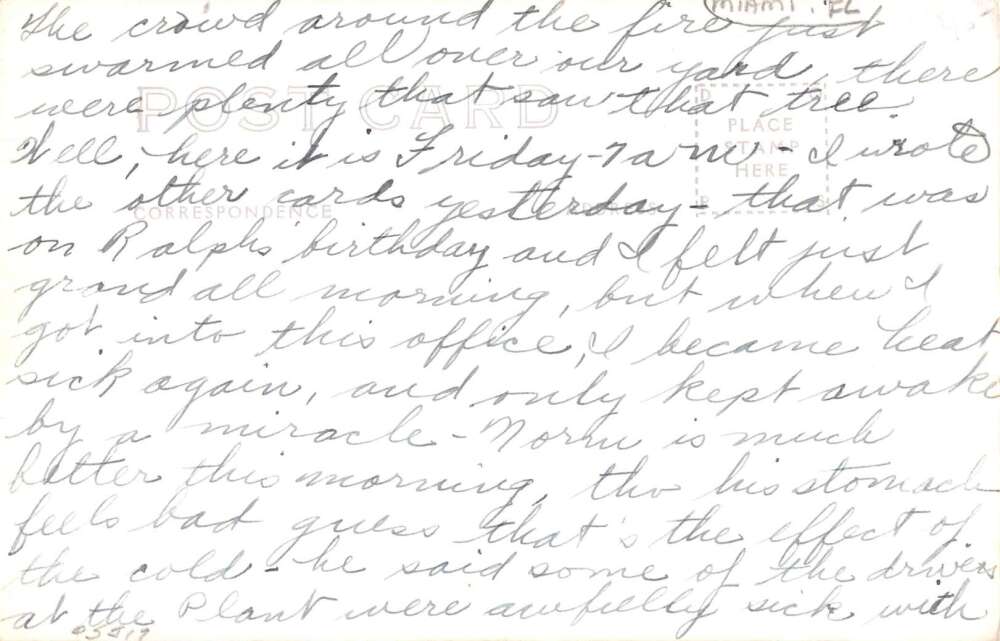 MIAMI. FL
The crowd around the fire just
swarmed all over our yard, there
were plenty that saw that tree.
POST CARD
Well, here it is Friday - 7 a m - I wrote
PLACE
STAMP
HERE
the other cards yesterday - that was
CORRESPONDENCE
ADDRESS
on Ralphs' birthday and I felt just
grand all morning, but when I
got into this office, I became heat
sick again, and only kept awake
by a miracle - Norm is much
better this morning, tho his stomach
feels bad guess that's the effect of
the cold - he said some of the drivers
at the Plant were awfully sick with